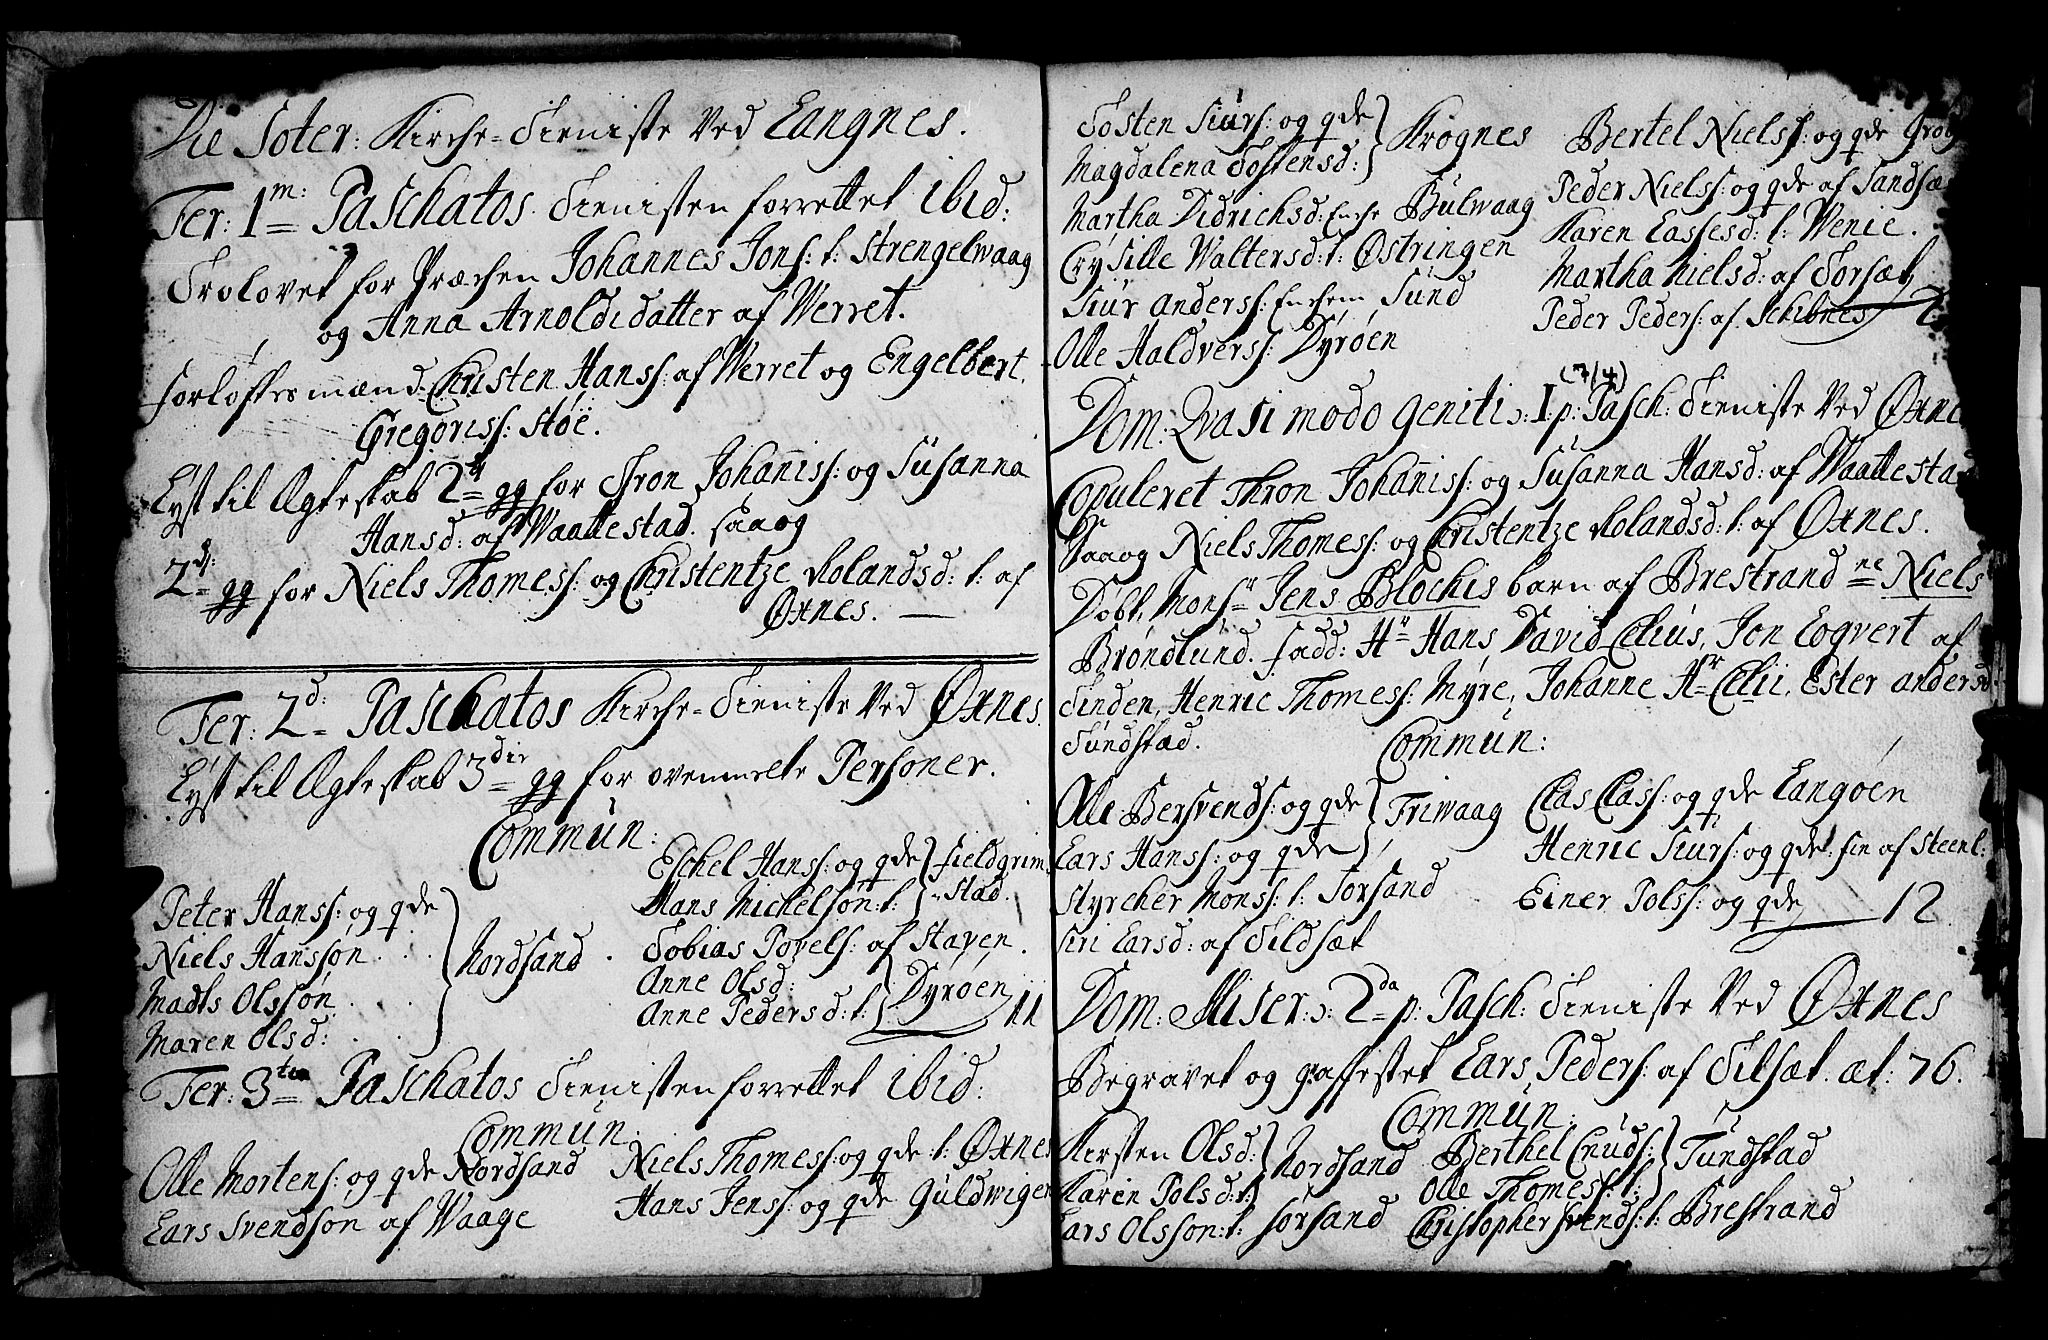 Die Soter: Kirche-Tieniste Ved Langnes.
Fer: 1m: Paschatos. Tienisten forrettet ibid:
Trolovet for Præchen Johannes Jons: l: Strengelwaag
og Anna Arnoldsdatter af Werret.
Forløftesmænd Christen Hanss: af Werret og Engelbert
Gregoriss: Støe.
Lyst til Ægteskab 2d gg for Thron Johaniss: og Susanna
Hansd: af Waattestad. saaog
2d: gg for Niels Thomess: og Christentze Rolandsd: l: af
Øxnes.
Fer: 2d: Paschatos Kirche-Tieniste Ved Øxnes.
Lyst til Ægteskab 3die gg for ovenmelte Personer.
Commun:
Peter Hanss: og qde
Niels Hanssøn
Madts Olssøn
Maren Olsd:
Nordsand
Eschel Hanss: og qde
Hans Michelsøn: l:
Fieldgrim-
stad.
Tobias Povels: af Staven.
Anne Olsd:
Anne Pedersd: l:
Dyrøen 11
Fer: 3tia Paschatos Tienisten forrettet ibid:
Commun:
Olle Mortens: og qde Nordsand
Lars Svendsøn af Waage
Niels Thomess: og qde l: Øxnes
Hans Jenss: og qde Guldwigen
Tosten Siurs: og qde
Magdalena Tostensd:
Krognes
Martha Didrichsd: Enche Bulwaag
Crysille Waltersd: l: Østringen
Siur Anderss: Enchem Sund
Olle Haldverss: Dyrøen
Bertel Nielss: og qde
Peder Nielss: og qde af Sandsæt
Karen Lassesd: l: Wenie.
Martha Nielsd: af Torsæt
Peder Peders: af Schibnes
(7/4)
Dom: Qvasi modo geniti ɔ: I p: Pasch: Tieniste Ved Øxnes
Copuleret Thron Johaniss: og Susanna Hansd: af Waattestad
Saaog Niels Thomess: og Christentze Rolandsd: l: af Øxnes.
Døbt, Monsr Jens Blochis barn af Brestrand ne Niels
Brøndlund. fadd: Hr Hans David Celius, Jon Logvert af
Tinden, Henric Thomess: Myre, Johanne Hr Celii, Ester Andersd:
Tundstad.
Commun:
Olle Bersvends: og qde
Lars Hanss: og qde
Triwaag
Styrcher Monss: l: Sorsand
Siri Larsd: af Tildsæt
Clas Class: og qde Langøen
Henric Siurs: og qde: fin af Steenl:
Einer Polss: og qde 12
Dom: Miser: ɔ: 2da p: Pasch: Tieniste Ved Øxnes
Begravet og paaffestet Lars Peders: af Tilsæt. æt: 76.
Commun:
Kirsten Olsd:
Karen Polsd: l:
Nordsand
Lars Olsson: l: Sorsand
Berthel Cnuds:
Olle Thomess: l:
Tundstad
Christopher Svends: l: Brestrand